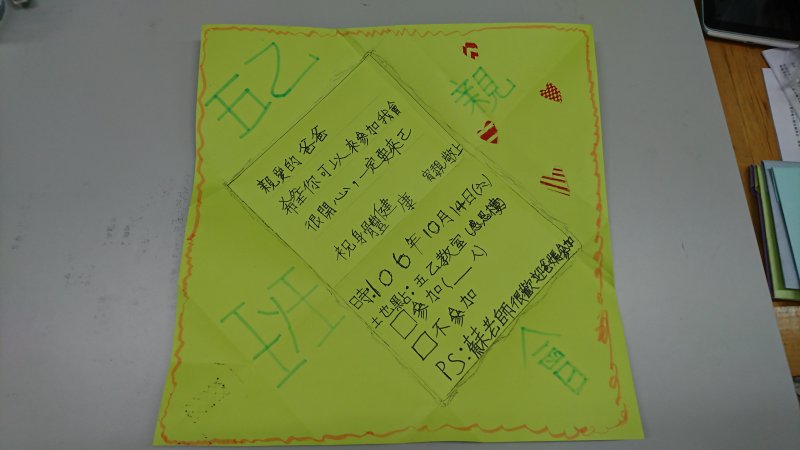 五乙
親
班
會
親愛的爸爸
希望你可以來參加我會
很開心,一定要來己
敬上
祝身體健康
時:106年10月14日(六)
地點:五乙教室(感恩樓)
□參加(__人)
□不參加
PS:蘇老師很歡迎爸媽參加